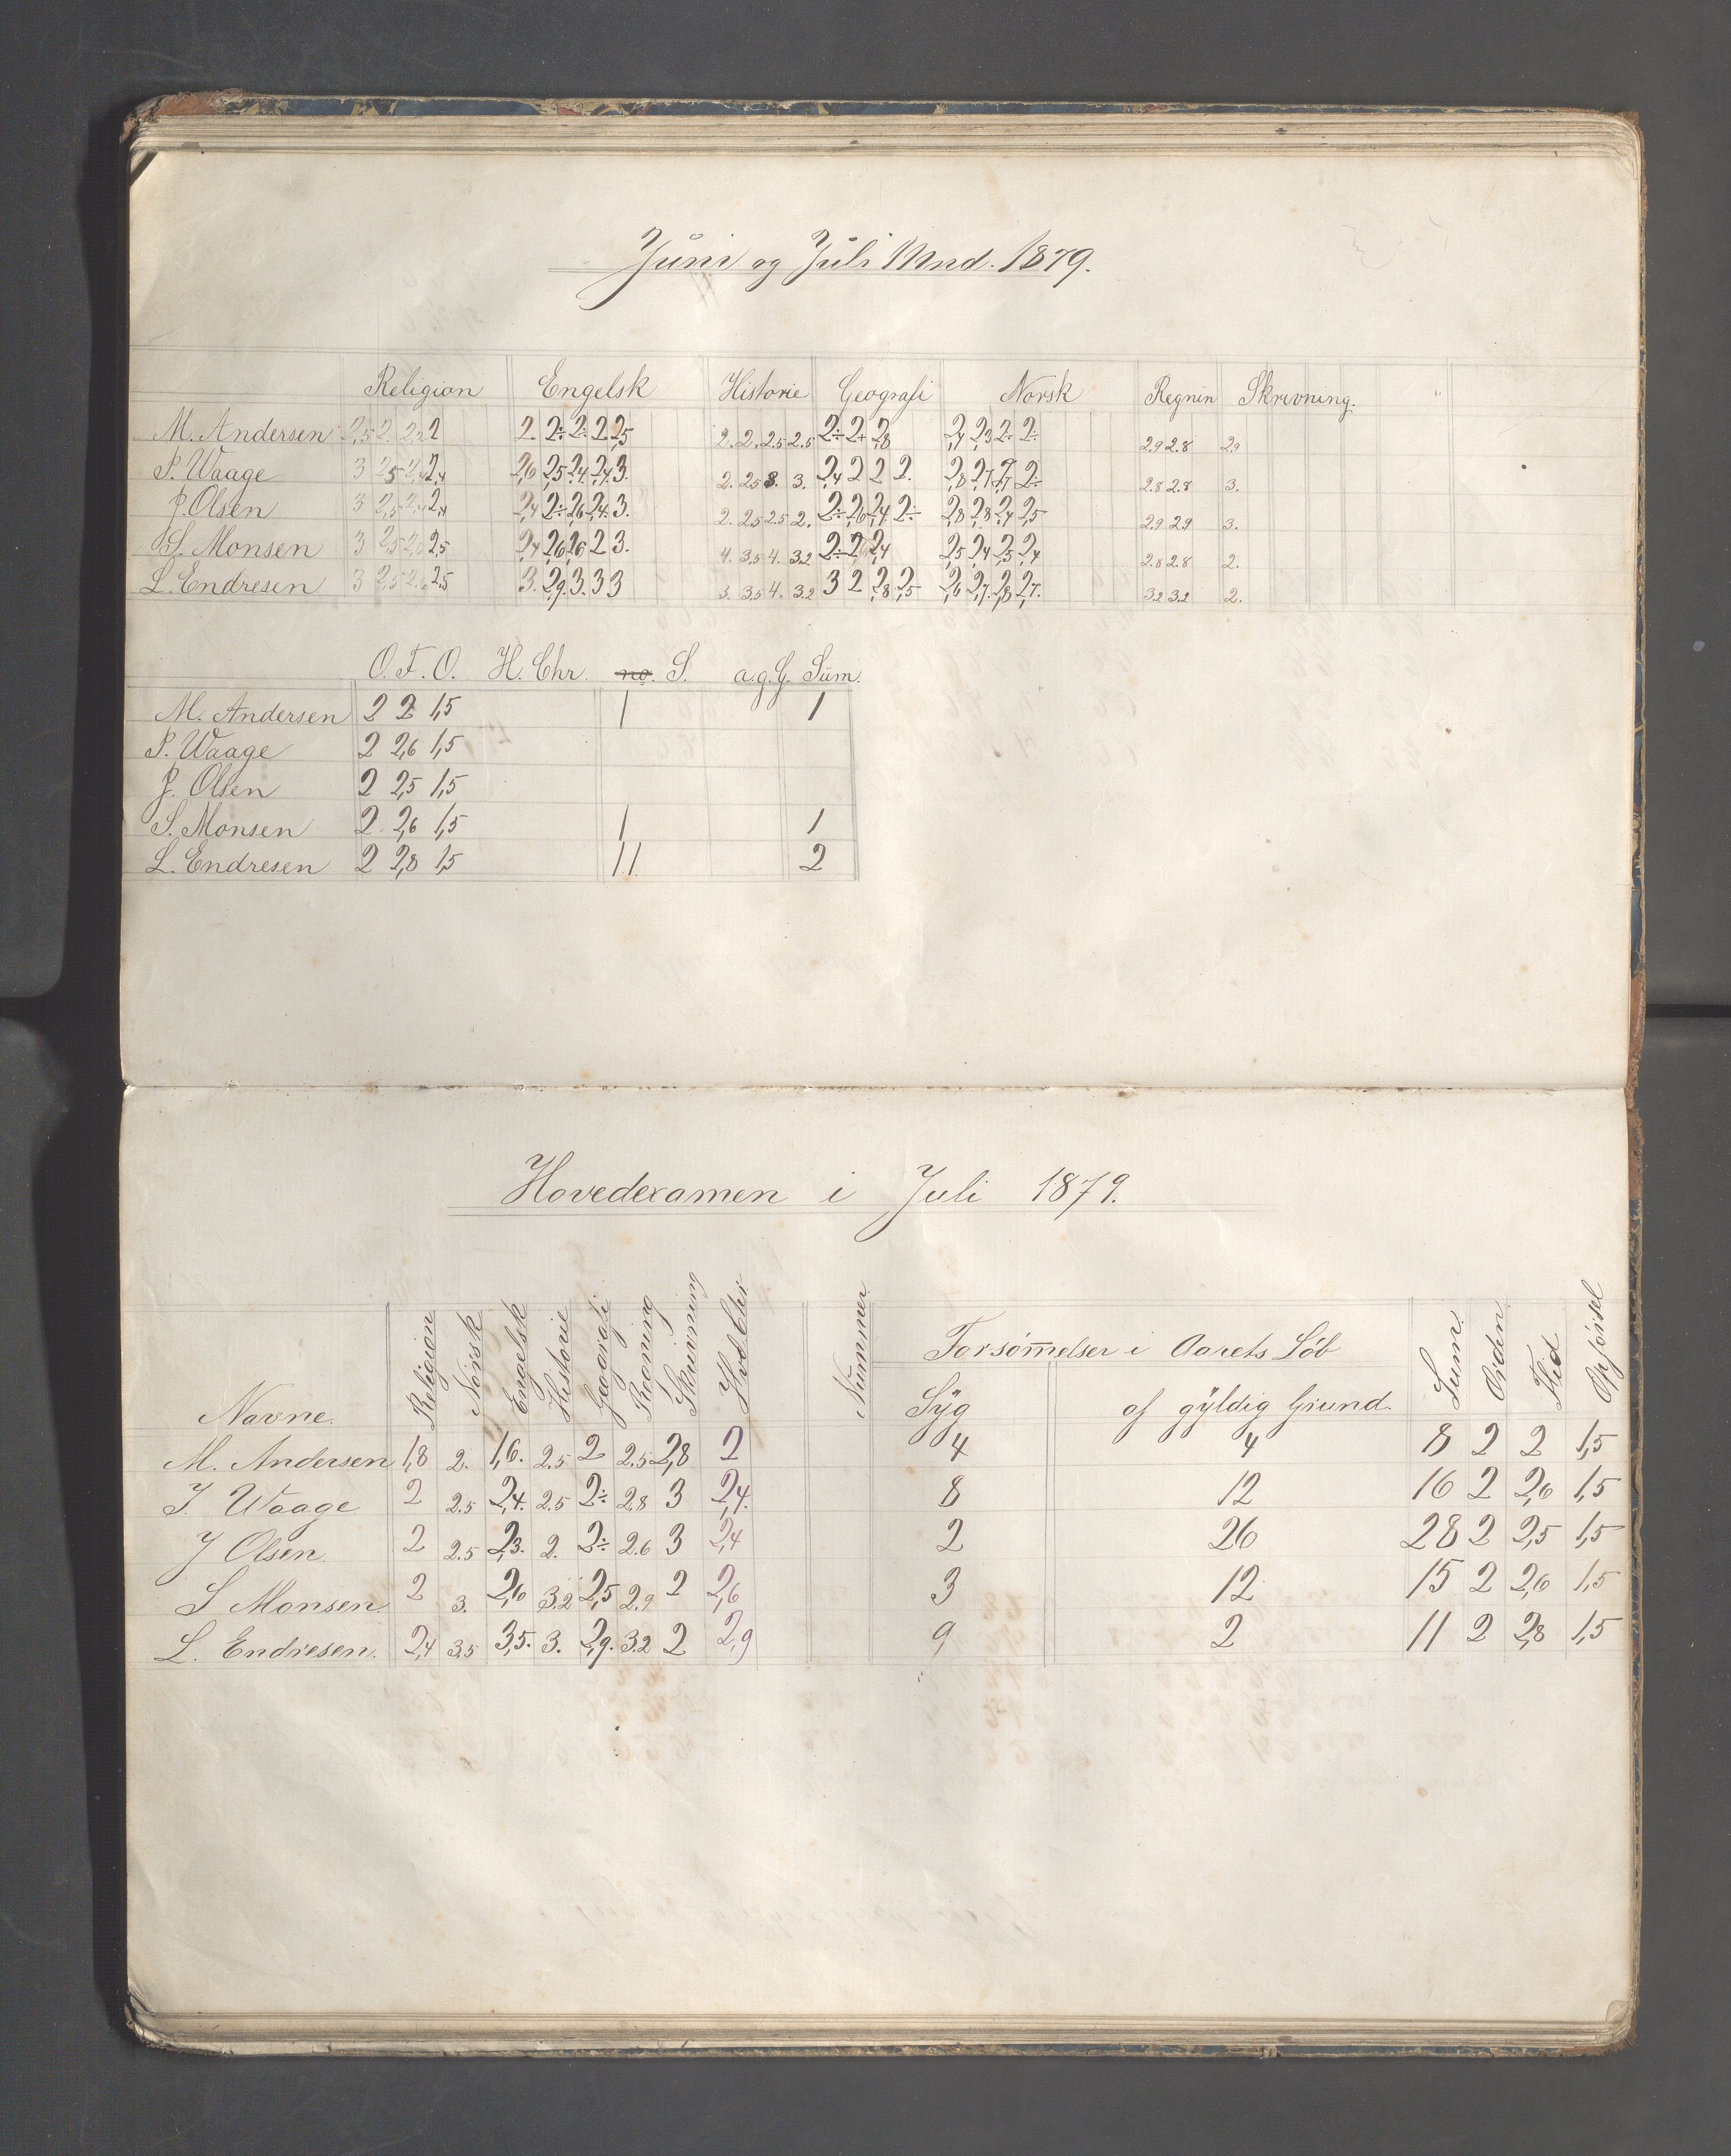 Juni og Juli Mnd. 1879.
Religion Engelsk Historie Geografi Norsk Regnin Skrivning.
M. Andersen 2,5 2. 2,2 2 2 2÷ 2÷ 2 2,5 2. 2. 2.5 2.5 2÷ 2+ 2,8 2,4 2,3 2÷ 2÷ 2.9 2.8 2.9
P. Waage 3 2,5 2,4 2,4 2,6 2,5 2,4 2,4 3. 2. 2.5 3. 3. 2,4 2 2 2. 2,8 2,7 2,7 2÷ 2.8 2.8 3.
J. Olsen 3 2,5 2,4 2,4 2,4 2÷ 2,6 2,4. 3. 2. 2.5 2.5 2. 2÷ 2,6 2,4. 2÷ 2,8 2,8 2,4 2,5 2.9 2.9 3.
S. Monsen 3 2,5 2,5 2,4 2,6 2,6 2 3. 4. 3.5 4. 3.2 2÷ 2 2,4 2,5 2,4 2,5 2,4 2.8 2.8 2.
L. Endresen 3 2,5 2,5 3. 2,9. 3. 3 3 3. 3.5 4. 3.2 3 2 2,8 2,5 2,6 2,7. 2,8 2,7. 3.2 3.2 2.
O. F. O. H. Chr. no. S. a.g.G. Sum.
M. Andersen 2 2 1,5 1 1
P. Waage 2 2,6 1,5
J. Olsen 2 2,5 1,5
S. Monsen 2 2,6 1,5 1 1
L. Endresen 2 2,8 1,5 11 2
Hovedexamen i Juli 1879.
Navne. Religion Norsk Engelsk Historie Geografi Regning Skrivning Hvd.Chr Nummer. Forsømmelser i Aarets Løb Sum. Orden Flid Opførsel
Syg af gyldig Grund.
M. Andersen 1,8 2. 1,6. 2.5 2 2.5 2,8 2 4 4 8 2 2 1,5
P. Waage 2 2.5 2,4. 2.5 2÷ 2.8 3 2,4. 8 12 16 2 2,6 1,5
J Olsen 2 2.5 2,3. 2. 2÷ 2.6 3 2,4 2 26 28 2 2,5 1,5
S Monsen 2 3. 2,6 3.2 2,5 2.9 2 2,6 3 12 15 2 2,6 1,5
L. Endresen. 2,4 3.5 3,5. 3. 2,9. 3.2 2 2,9 9 2 11 2 2,8 1,5